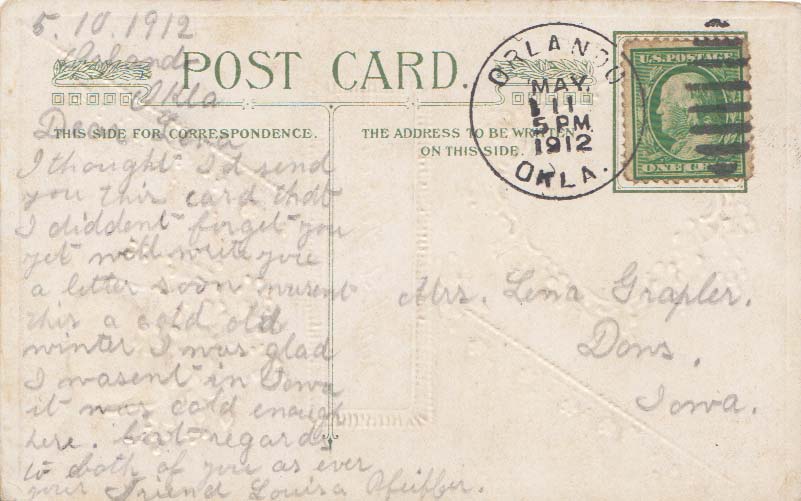 5.10.1912
Orlando
Okla
POST CARD.
Dear Lena
THIS SIDE FOR CORRESPONDENCE.
I thought I'd send
you this card that
I diddent forget you
yet will write you
a letter soon wusent
this a cold old
winter I was glad
I wasent in Iowa
it was cold enough
here. best regards
to both of you as ever
your Friend Louisa Pfeiffer.
THE ADDRESS TO BE WRITTEN
ON THIS SIDE.
ORLANDO
MAY
11
5 PM
1912
OKLA.
U.S. POSTAGE
ONE CENT
Mrs. Lena Grapler.
Dows.
Iowa.